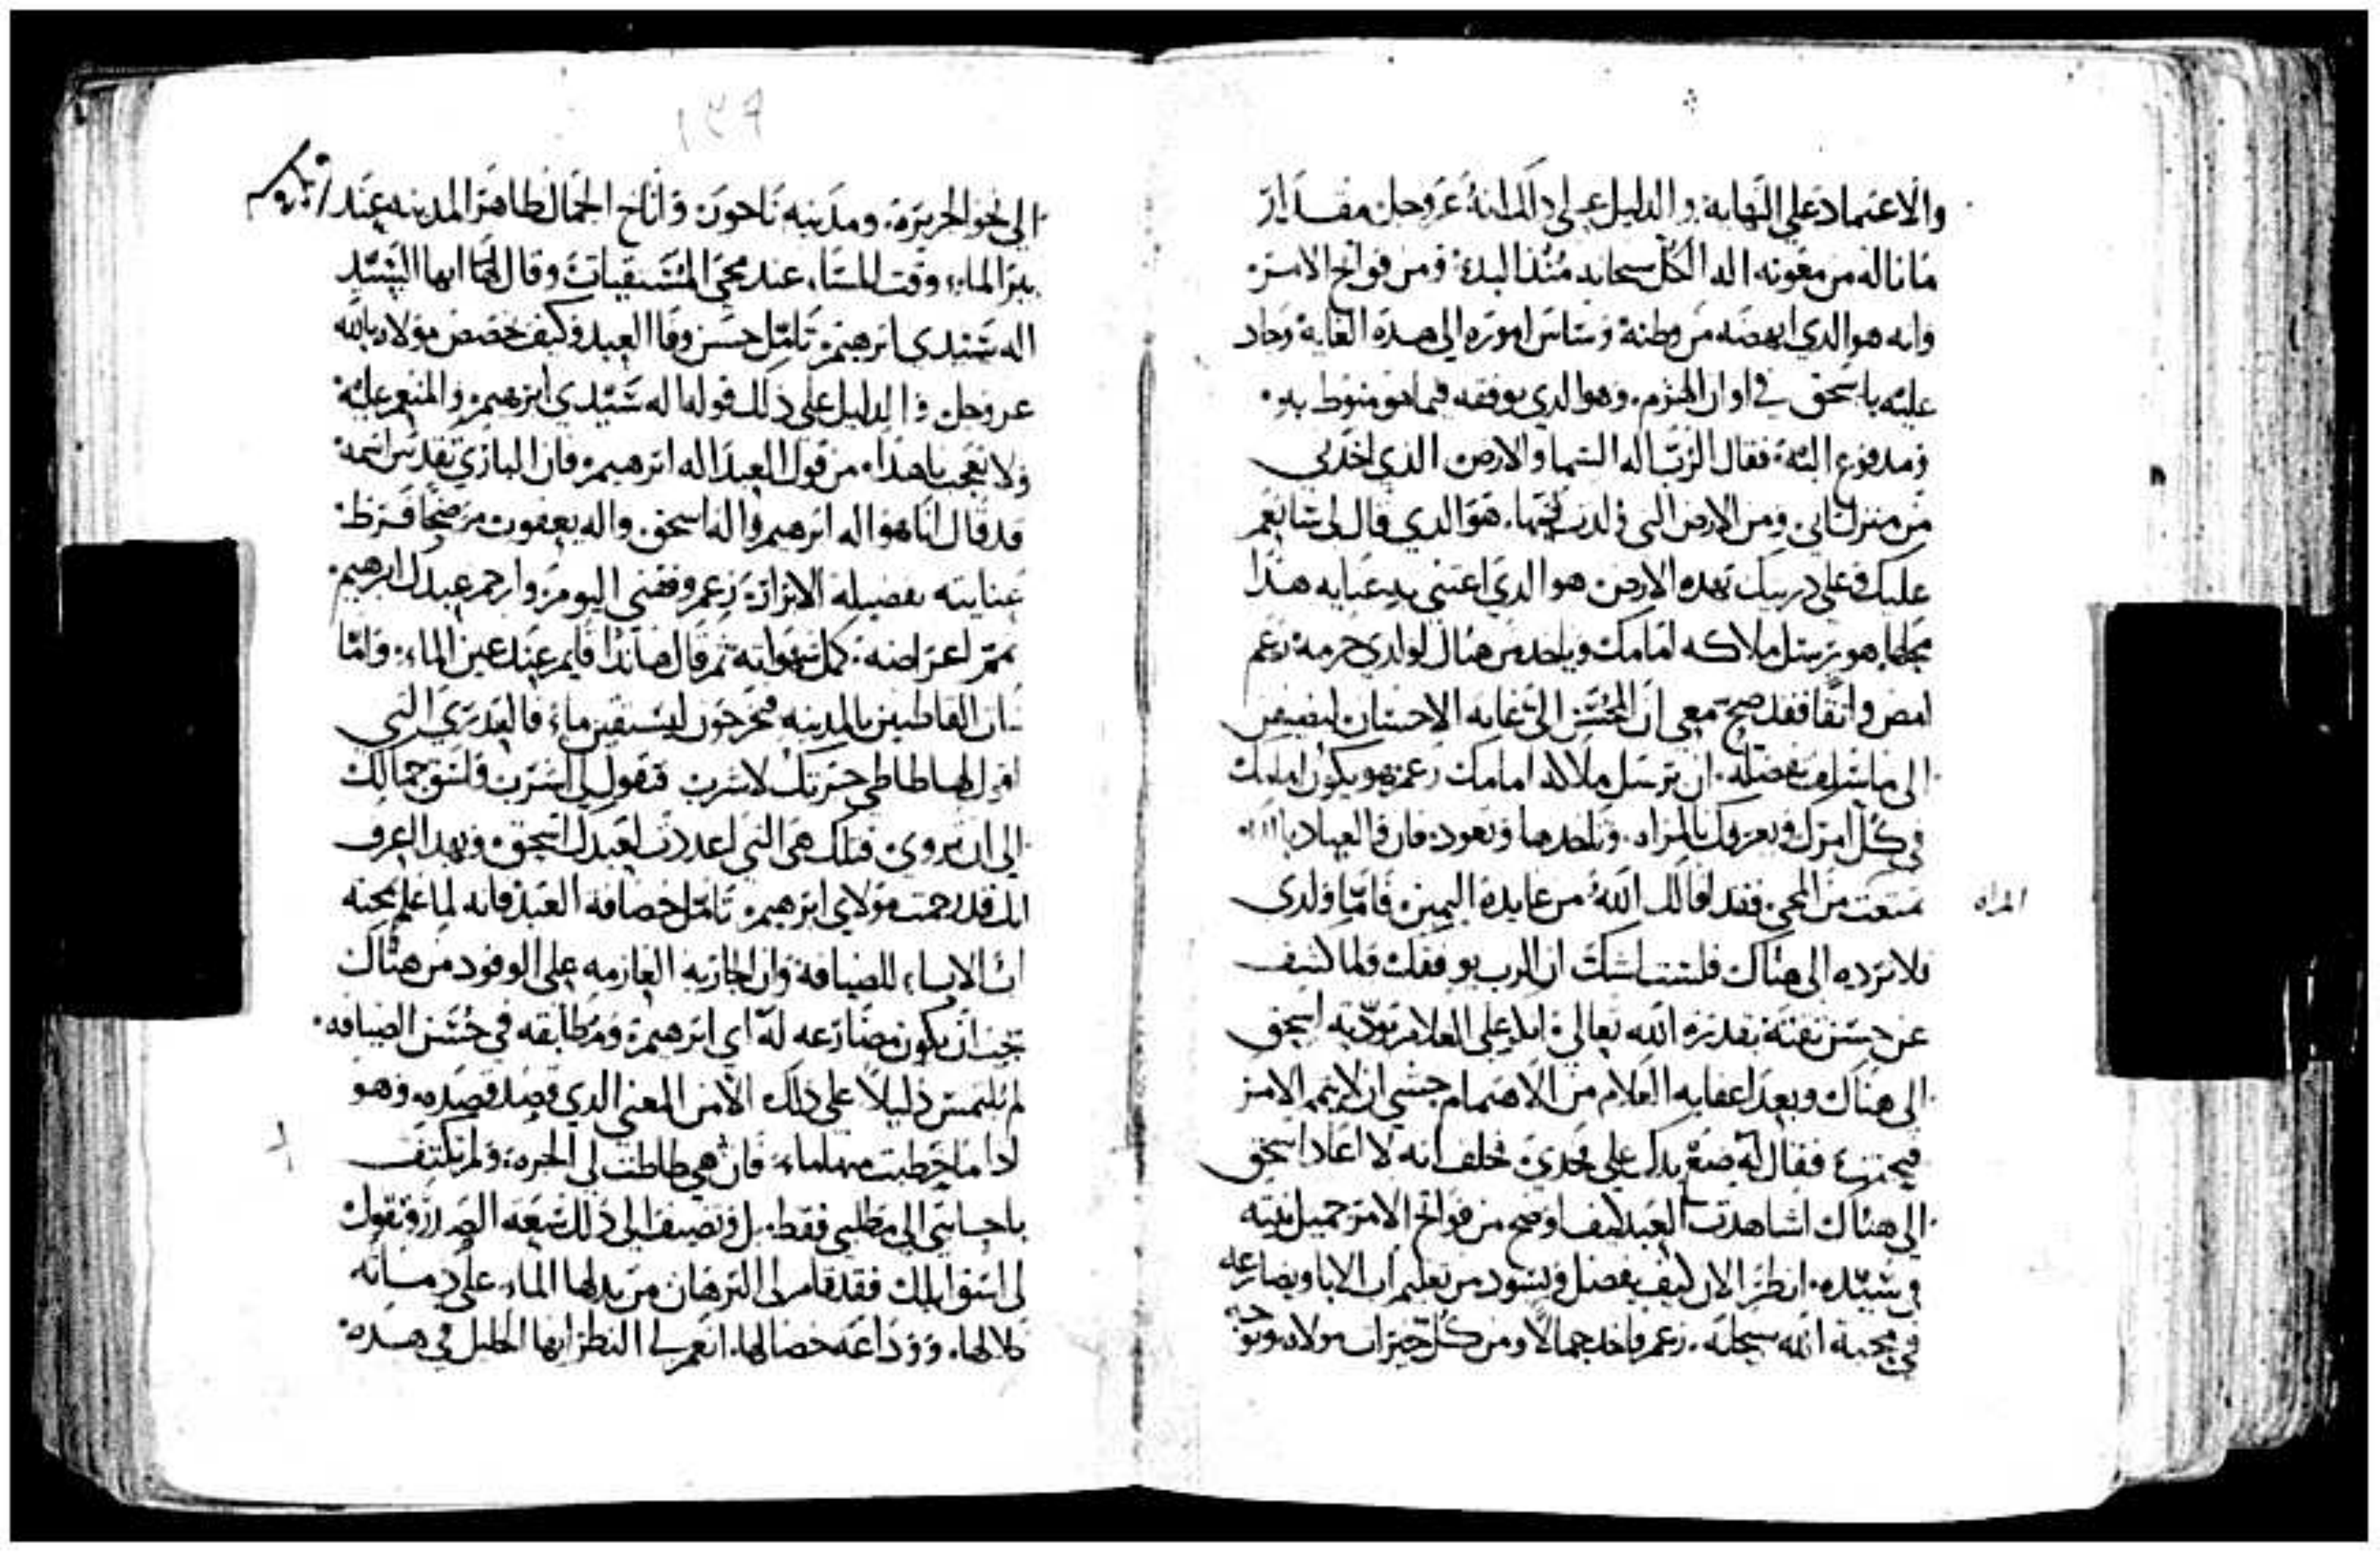 والاعتماد على النهايه والدليل على ذلك انه عز وجل مقدار
ما ناله من معونه اله الكل سبحانه منذ البدء ومن فواتح الامر
وانه هو الذي انهضه من وطنه وساس اموره الى هذه الغايه وجاد
عليه باسحق في اوان الهرم وهو الذي يوفقه فيما هو منوط به
ومدفوع اليه فقال الرب اله السما والارض الذي اخذني
من منزل ابي ومن الارض التي ولدت فيها هو الذي قال لي سانعم
عليك وعلى ذريتك بهذه الارض هو الذي اعتنى بي عنايه هذا
محلها هو يرسل ملاكه امامك وياخذ من هناك لولدي حرمه زعم
امض واثقا فقد صح معي ان المحسن الي غايه الاحسان ليضيفن
الى ما سلف بفضله ان يرسل ملاكه امامك زعم هو يكون امامك
في كل امرك ويعرفك بالمراه وتاخذها وتعود فان
منعت من المجي فقد اقالك الله من عايده اليمين فاما ولدي
المراه
فلا ترده الى هناك فلست اشك ان الرب يوفقك ولما كشف
عن حسن ثقته بقدره الله تعالى على الغلام توديه اسحق
الى هناك وبعد اعفايه الغلام من الاهتمام خشي ان لا يتم الامر
فقال له ضع يدك على فخدي فحلف انه لا اعاد اسحق
الى هناك اشاهدت العبد كيف اوضح من فواتح الامر جميل نيته
في سيده انظر الان كيف يفضل ويسود من تعليم اب الابا ويضارعه
في محبة الله سبحانه زعم واخذ جمالا ومن كل خيرات مولاه
١٣٩
الى نحو الجزيرة ومدينه ناحور واناخ الجمال ظاهر المدينه عند
بير الماء وقت المساء عند مجي المستقيات وقال ايها السيد
اله سيدي ابرهيم تامل حسن وفا العبد وكيف خصص مولاه بالله
عز وجل والدليل على ذلك قوله اله سيدي ابرهيم والمنعم عليه
ولا تعجب يا هذا من قول العبد اله ابرهيم فان الباري تقدس اسمه
قد قال انا هو اله ابرهيم واله اسحق واله يعقوب
عنايته بفضيله الابرار زعم وفقني اليوم وارحم عبدك ابرهيم
تمم اغراضه كمل شهواته ثم قال هانذا قايم عند عين الماء واما
بنات القاطنين بالمدينه فيخرجون ليستقين ماء فالعذرى التي
اقول لها طاطي جرتك لاشرب فتقول لي اشرب واسق جمالك
الى ان تروى فتلك هي التي اعددت لعبدك اسحق وبهذا اعرف
انك قد رحمت مولاي ابرهيم تامل حصافة العبد فانه لما علم محبه
اب الاباء للضيافة وان الجاريه العازمه على الوفود من هناك
يجب ان يكون مضارعه له اي ابرهيم ومطابقه في حسن الضيافه
لم يلتمس دليلا على ذلك الا من المعنى الذي قصد قصده وهو
اذا ما خطبت منها ماء فان هي طاطت لي الجره ولم تكتف
باجابتي الى مطلبي فقط بل وتضيف الى ذلك سعه الصدر وتقول
لي اسق ابلك فقد قام لي البرهان من بدلها الماء على دماثه
خلالها ووداعه خصالها انعم لي النظر ايها الخليل في هذه